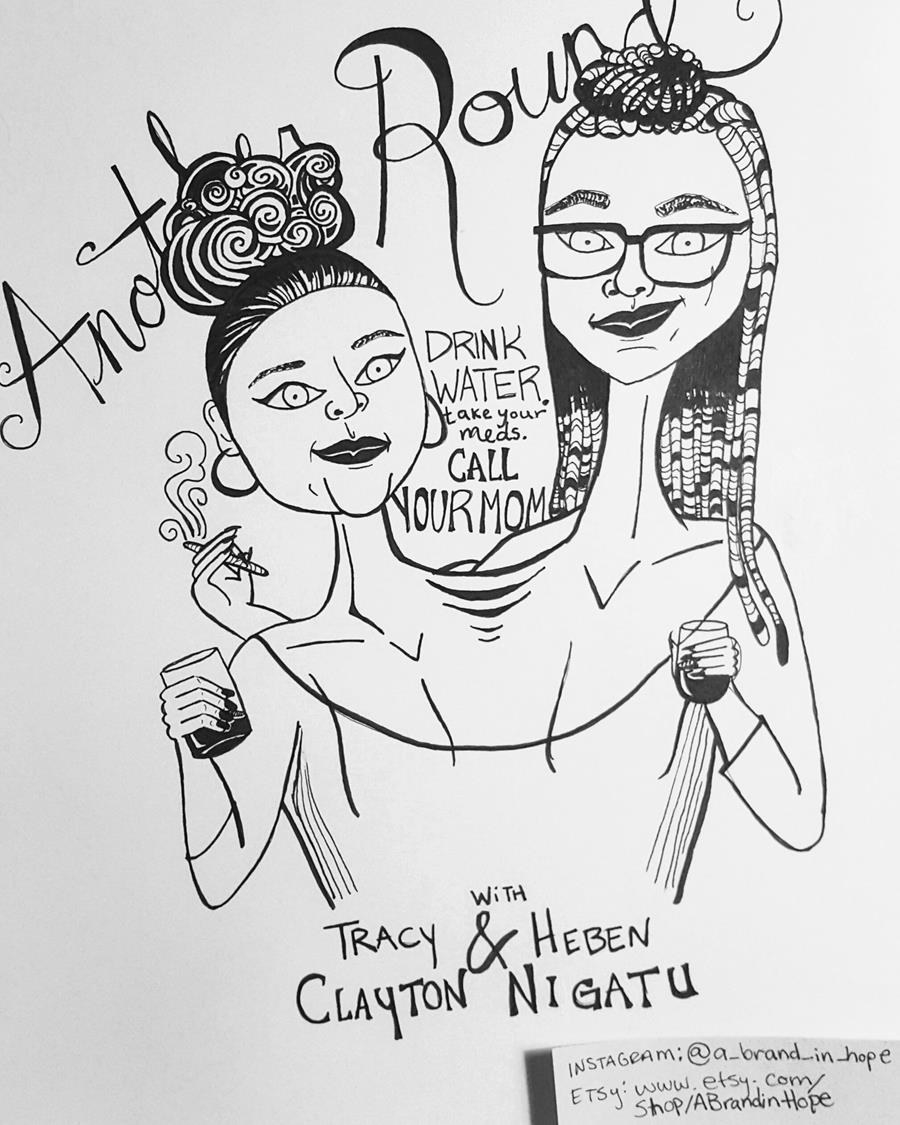 Another Round
DRINK
WATER.
take your
meds.
CALL
YOUR MOM
WITH
TRACY & HEBEN
CLAYTON NIGATU
INSTAGRAM: @a_brand_in_hope
ETSY: www.etsy.com/
shop/ABrandinHope